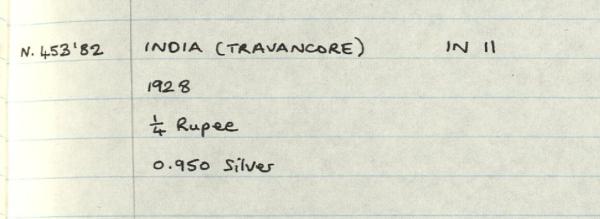 N. 453'82 INDIA (TRAVANCORE) IN 11
1928
1/4 Rupee
0.950 Silver